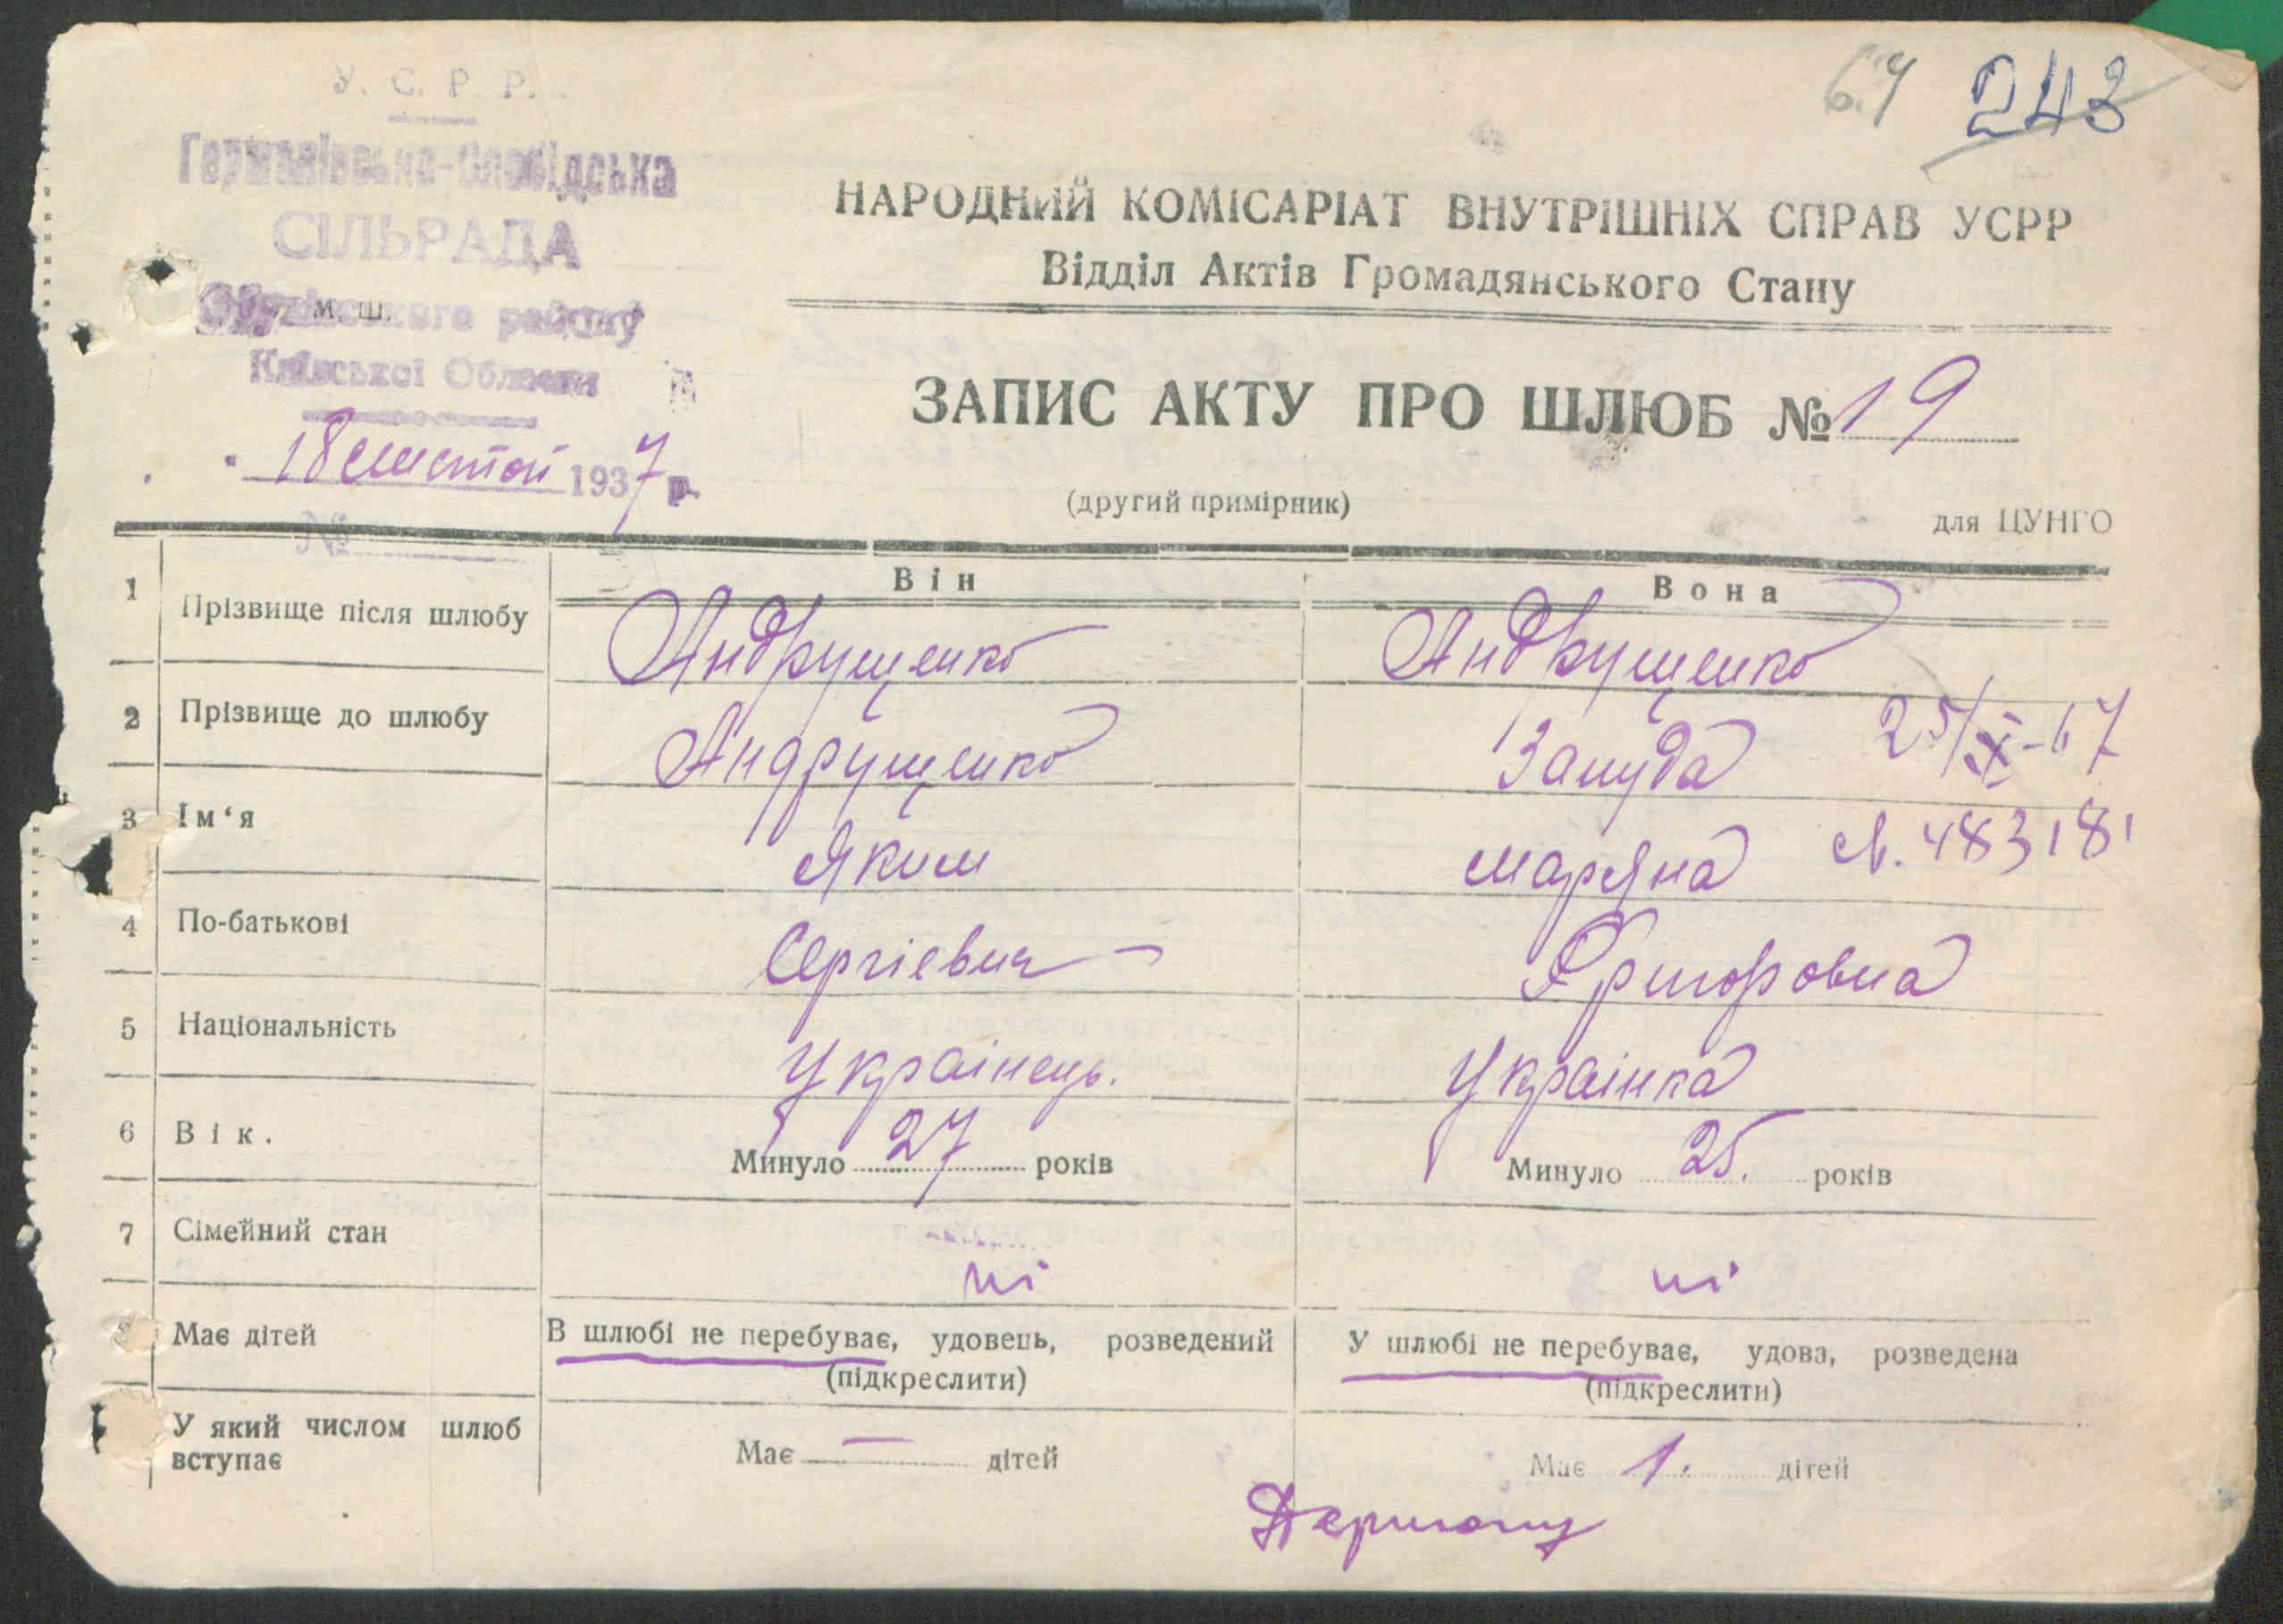 64 243
У. С. Р. Р.
Германівсько-Слобідська
СІЛЬРАДА
м. ш.
Обухівського району
Київської Области
18 листоп 1937 р.
№
НАРОДНИЙ КОМІСАРІАТ ВНУТРІШНІХ СПРАВ УСРР
Відділ Актів Громадянського Стану
ЗАПИС АКТУ ПРО ШЛЮБ № 19
(другий примірник)
для ЦУНГО
Він Вона
1 Прізвище після шлюбу Андрущенко Андрущенко
2 Прізвище до шлюбу Андрущенко Зануда 25/XI-67
3 Ім‘я Яким маряна св. 483181
4 По-батькові Сергієвич Григоровна
5 Національність Українець. Українка
6 Вік. Минуло 27 років Минуло 25. років
7 Сімейний стан ні ні
Має дітей В шлюбі не перебуває, удовець, розведений У шлюбі не перебуває, удова, розведена
(підкреслити) (підкреслити)
У який числом шлюб
вступає Має — дітей Має 1. дітей